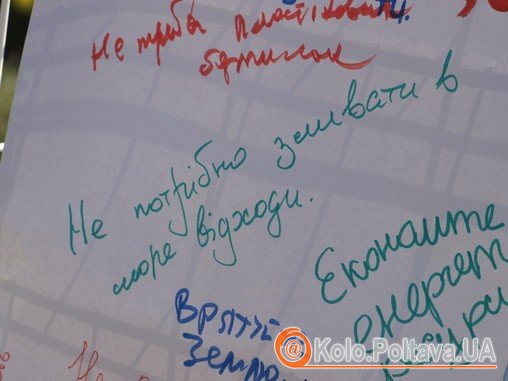 Не треба пластікових
бутилок
Не потрібно зливати в
море відходи.
Економите
енергет
Врятуй
Землю
Kolo.Poltava.UA